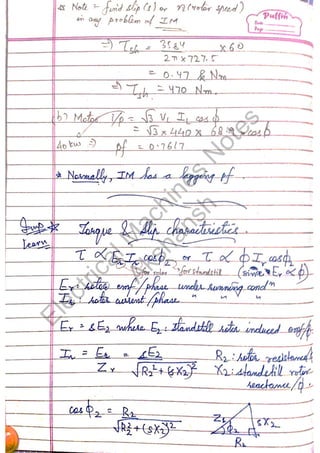 * Note = find slip (s) or n (motor speed)
in any problem of IM
Puffin
Date
Page
⇒ T_sh = 35.84 / 2π×727.5 × 60
= 0.47 k Nm
⇒ T_sh = 470 Nm.
(b) Motor I/p = √3 V_L I_L cos φ
40 kW ⇒ = √3 × 440 × 68.9 × cos φ
pf = 0.7617
* Normally, IM has a lagging pf.
Imp * Torque & slip characteristics.
learn
τ ∝ E_r I_r cosφ_2 or τ ∝ φ I_r cosφ_2
for rotor for standstill (since E_r ∝ φ)
E_r: rotor emf/phase under running condⁿ
I_r: rotor current/phase " " "
E_r = sE_2 where E_2: Standstill rotor induced emf/φ
I_r = E_r / Z_r = sE_2 / √R_2² + (sX_2)²
R_2: rotor resistance/φ
X_2: standstill rotor
reactance/φ.
cos φ_2 = R_2 / √R_2² + (sX_2)²
Z_r sX_2
φ_2
R_2
Electrical Machines Notes